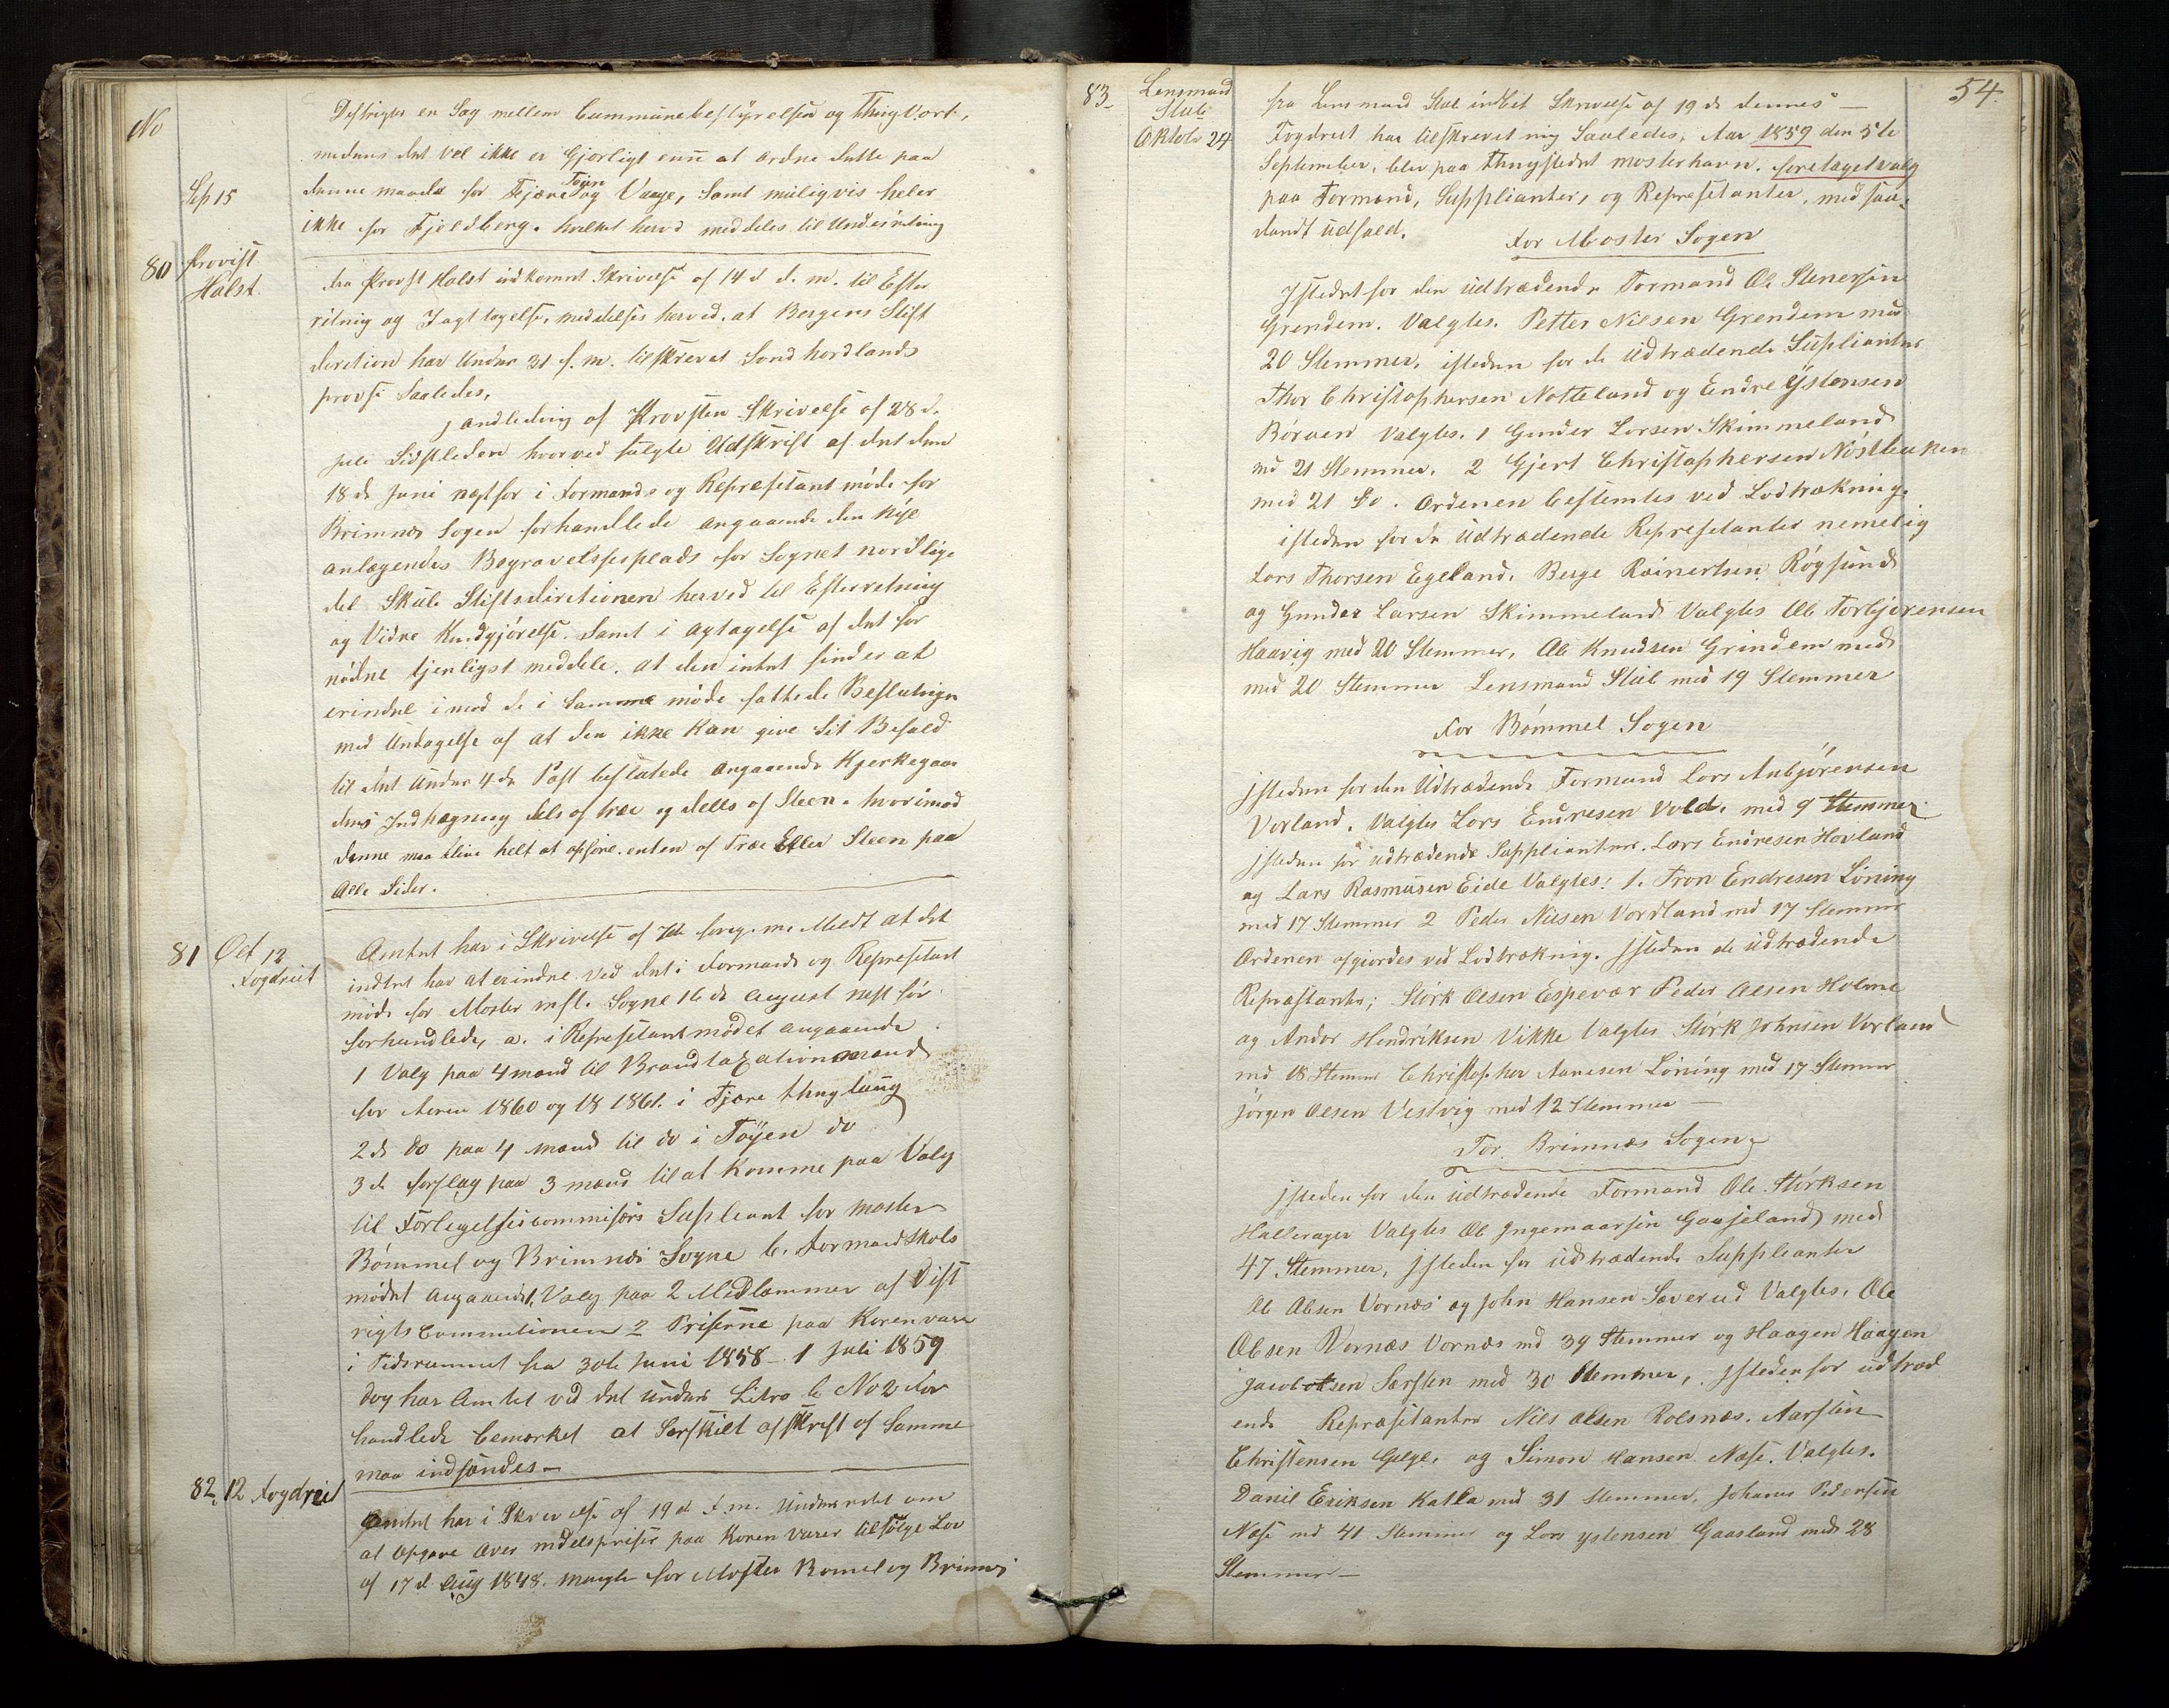 No
Distrigts en Sag mellem Communebestyrelsen og Thingl.
medens det vel ikke er Gjørligt enn at ordne dette paa
Sep 15
denne maade for Fjære Føyn og Vaage, Samt muligvis heler
ikke for Fjeldberg. hvilket herved meddeles til Underretning
80 Provst Holst
fra Provst Holst indkomet Skrivelse af 14 d d. m. til Efter
ritnig og Jagttagelse, meddeles herved, at Bergens Stift
dirction har Under 31 f. m. tilskrevet Sondhordlands
provsi Saaledes,
J andledning af Provsten Skrivelse af 28 d.
Juli Sidstleden hvorved fulgte Udskrift af det den
18 de Juni nestfor i Formands og Represetant møde for
Brimnes Sogen forhandlede angaaende den Nye
anlægendes Begravelsesplads for Sognet nordlige
del Skule Stiftsdirctionen herved til Efterretning
og Vidre Kundgjørelse. Samt i agtagelse af det for
nødne tjenligst meddele, at den intet finder at
erindre imod de i Samme møde fattede Beslutnige
med Undtagelse af at den ikke Kan give Sit Befald
til det Under 4 de Post besluttede angaaende Kjerkegaar
dens Indhegning dels af træ og dells af Steen. hvorimod
denne maa blive helt at opføre. enten af Træ Eller Steen paa
Alle Sider.
81 Oct 12 Fogdriet
Amtet har i Skrivelse af 7de foreg. m. Meldt at det
indtet har at erindre ved det i Formands og Represetant
møde for Moster mfl. Sogne 16 de August nest før
forhandlede, a. i Represetant mødet angaaende
1 Valg paa 4 mand til Brandtaxationsmænd
for Aarene 1860 og 18 1861. i Fjære thinglaug
2 de Do paa 4 mand til do i Føyen do
3 de forslag paa 3 mænd til at Komme paa Valg
til Forligelsescommisærs Supleant for moster
Bømmel og Brimnes Sogne b. Formandskabs
mødet angaaende, Valg paa 2 Medlemmer af Dist
rigts Commitionen 2 Priserne paa Korenvare
i Tidsrummet fra 30te Juni 1858 – 1 Juli 1859
dog har Amtet ved det under Litra b No 2 For
handlede bemærket at Særskilt afskrift af Samme
maa indsendes –
82, 12 Fogdriet
Amtet har i Skrivelse af 19 d f. m. Underrettet om
at Opgave over midelspriser paa Koren varer tilfølge Lov
af 17 d Aug 1848. mangle for Moster Bomel og Brimnes
54.
83 Lensmand Stub Oktob 24
fra Lensmand Stub indbet Skrivelse af 19 de dennes –
Fogdriet har tilskrevet mig Saaledes, Aar 1859 den 5 te
September, blev paa thingstedet mosterhavn. foretaget valg
paa Formand, Supplianter, og Represetanter, med saa-
dandt Udfald.
For Moster Sogen
Jstedet for den Udtrædende Formand Ole Stenersen
Grendem. Valgtes. Petter Nilsen Grendem med
20 Stemmer, isteden for de Udtrædende Supliantes
Thor Christophersen Notteland og Endre Ystensen
Børuen Valgtes. 1 Gunder Larsen Skimmeland
md 21 Stemmer. 2 Gjert Christophersen Nøstbaken
med 21 Do. Ordenen bestemtes ved Lodtrækning.
isteden for de Udtrædende Represetanter nemelig
Lars Thorsen Egeland. Berge Reinertsen Røgsund
og Gunder Larsen Skimmeland Valgtes Ole Torbjørensen
Haavig med 20 Stemmer, Ole Knudsen Grindem med
med 20 Stemmer Lensmand Stub med 19 Stemmer
For Bømmel Sogen
Jsteden for den Udtrædende Formand Lars Anbjørensen
Vorland. Valgtes Lars Endresen Vold. med 9 Stemmer
Jsteden for udtrædende Supplianter. Lars Endresen Hovland
og Lars Rasmusen Eide Valgtes: 1. Tron Endresen Løning
med 17 Stemmer 2 Peder Nilsen Vordland md 17 Stemmer
Ordenen afgiordes ved Lodtræknig. Jsteden de udtrædende
Repræstanter; Størk Olsen Espevær Peder Olsen Holme
og Andor Hendriksen Vikke Valgtes Størk Johnsen Vorland
md 18 Stemmer Christopher Aanesen Løning med 17 Stemmer
Jørgen Olsen Vestvig med 12 Stemmer –
For Brimnæs Sogen
Jsteden for den udtrædende Formand Ole Størksen
Hallerager Valgtes Ole Jngemaarsen Gaaseland med
47 Stemmer, Jsteden for udtrædende Suppleanter
Ole Olsen Vornæs og John Hansen Saverud Valgtes. Ole
Olsen Vornæs Vornæs md 39 Stemmer og Haagen Haagen
Jacobsen Særsten med 30 Stemmer, Jsteden for udtræd
ende Repræsetanter Nils Olsen Rolsnæs. Aarstein
Christensen Gelge. og Simon Hansen Næse. Valgtes.
Daniel Eriksen Katla med 31 Stemmer, Johanes Pedersen
Næse md 41 Stemmer og Lars ystensen Gaasland med 28
Stemmer –